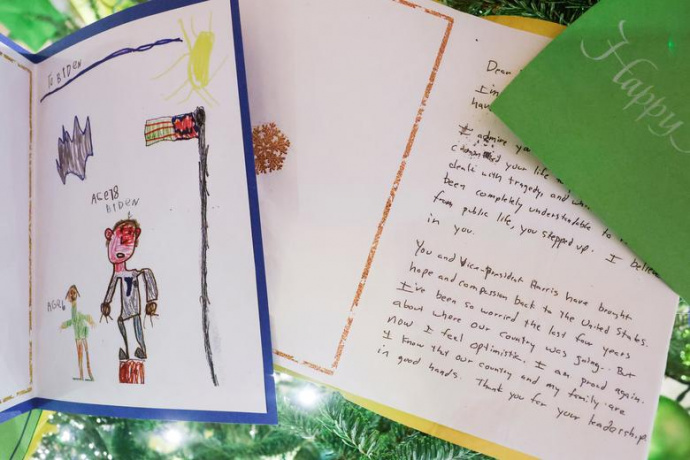 To BIDEN
AGE78
BIDEN
AGE6
Dear
I'm
hav
I admire yo
your life
dealt with tragedy, and wh
been completely understandable to
from public life, you stepped up. I believe
in you.
You and Vice-President Harris have brought
hope and compassion back to the United States.
I've been so worried the last four years
about where our country was going. But
now I feel optimistic. I am proud again.
I know that our country and my family are
in good hands. Thank you for your leadership.
Happy